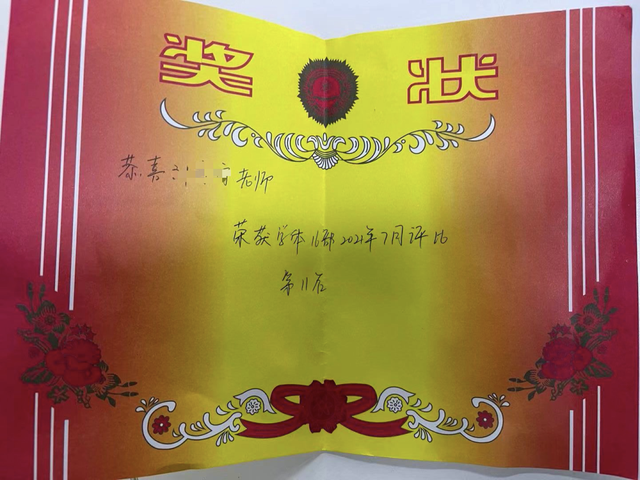 奖状
恭喜 老师
荣获学体16部2021年7月评比
第11名